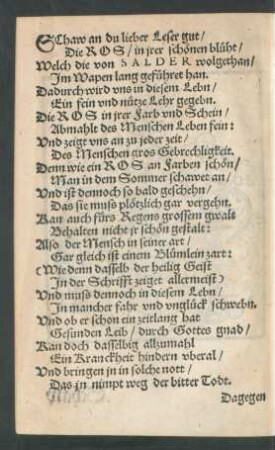 SChaw an du lieber Leser gut/
Die ROS/ in jrer schönen blüht/
Welch die von SALDER wolgethan/
Jm Wapen lang geführet han.
Dadurch wird vns in diesem Lebn/
Ein fein vnd nütze Lehr gegebn.
Die ROS in jrer Farb vnd Schein/
Abmahlt des Menschen Leben fein:
Vnd zeigt vns an zu jeder zeit/
Des Menschen gros Gebrechligkeit.
Denn wie ein ROS an Farben schön/
Man in dem Sommer schawet an/
Vnd ist dennoch so bald geschehn/
Das sie muß plötzlich gar vergehn.
Kan auch fürs Regens grossem gwalt
Behalten nicht jr schön gestalt:
Also der Mensch in seiner art/
Gar gleich ist einem Blümlein zart:
(Wie denn dasselb der heilig Geist
Jn der Schrifft zeiget allermeist)
Vnd muß dennoch in diesem Lebn/
Jn mancher fahr vnd vnglück schwebn.
Vnd ob er schon ein zeitlang hat
Gesunden Leib/ durch Gottes gnad/
Kan doch dasselbig allzumahl
Ein Kranckheit hindern vberal/
Vnd bringen jn in solche nott/
Das jn nimpt weg der bitter Todt.
Dagegen